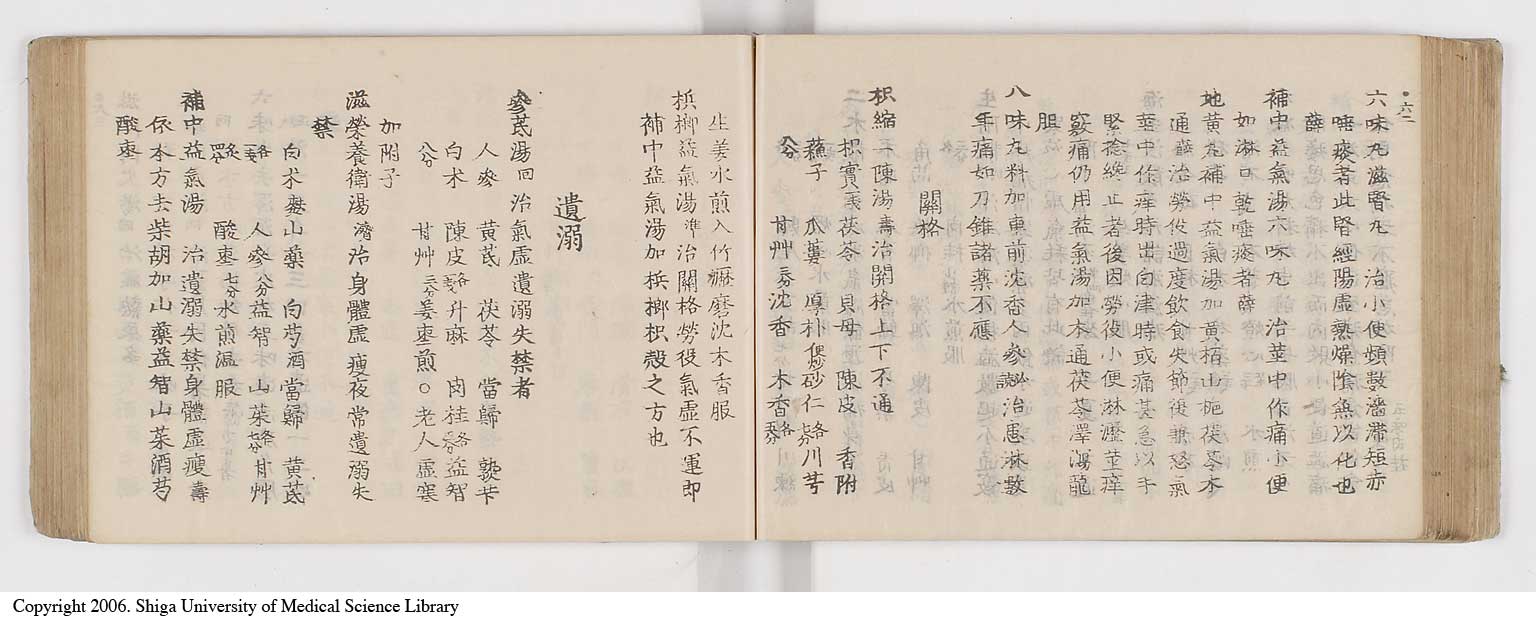 六二
六味丸滋腎丸　治小便頻數濇滞短赤
唾痰者此腎經陽虚熱燥陰無以化也
薛
補中益氣湯六味丸　治莖中作痛小便
如淋口乾唾痰者薛
地黄丸補中益氣湯加黄栢山梔茯苓木
通　治勞伇過度飲食失節後兼怒氣
莖中作痒時出白津時或痛甚急以手
緊捻纔止者後因勞役小便淋瀝莖痒
竅痛仍用益氣湯加木通茯苓澤瀉龍
胆
八味丸料加車前沈香人參 治患淋數
年痛如刀錐諸薬不應
関格
枳縮二陳湯壽治関格上下不通
枳實 茯苓　貝母　陳皮　香附
蘇子　瓜蔞　厚朴 砂仁 川芎
八分　甘艸三分沈香　木香
生姜水煎入竹瀝磨沈木香服
梹榔益氣湯準治関格勞役氣虚不運即
補中益氣湯加梹榔枳殻之方也
遺溺
參芪湯回治氣虚遺溺失禁者
人參　黄芪　茯苓　當歸　熟芐
白术　陳皮 升麻　肉桂 益智
八分　甘艸三分姜棗煎○老人虚寒
加附子
滋榮養衛湯濟治身體虚瘦夜常遺溺失
禁
白术 山藥三　白芍酒當歸　黄芪
人參八分益智　山茱 甘艸
酸棗七分水煎温服
補中益氣湯　治遺溺失禁身體虚瘦壽
依本方去柴胡加山藥益智山茱酒芍
酸棗
Copyright 2006. Shiga University of Medical Science Library